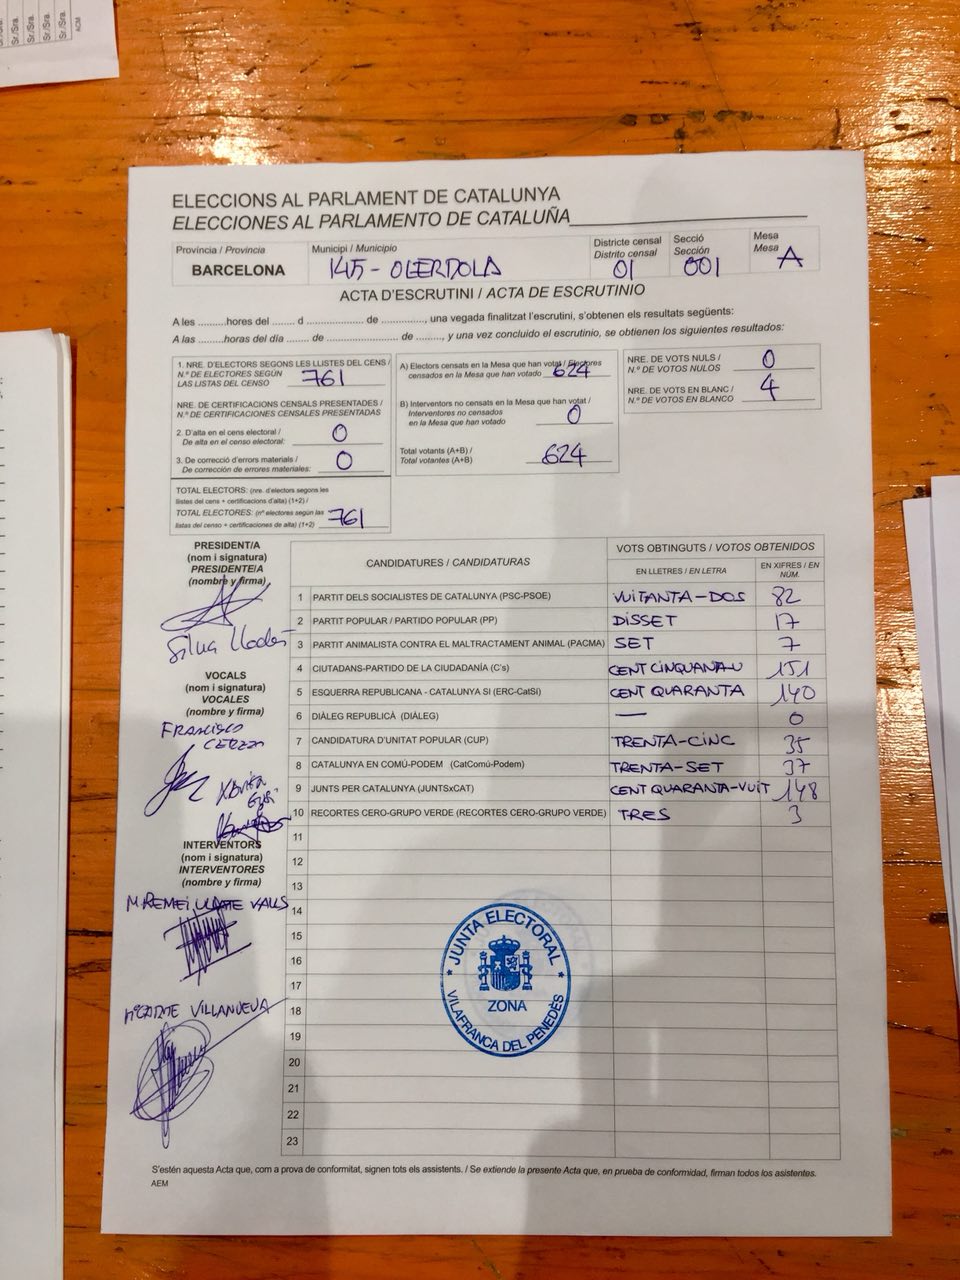 Sr./Sra.
Sr./Sra.
Sr./Sra.
Sr./Sra.
ACM
ELECCIONS AL PARLAMENT DE CATALUNYA
ELECCIONES AL PARLAMENTO DE CATALUÑA
Província / Provincia
BARCELONA
Municipi / Municipio
145 - OLERDOLA
Districte censal
Distrito censal
01
Secció
Sección
001
Mesa
Mesa
A
ACTA D'ESCRUTINI / ACTA DE ESCRUTINIO
A les .........hores del ....... d .................. de .............., una vegada finalitzat l'escrutini, s'obtenen els resultats següents:
A las .........horas del día ....... de .................. de ........., y una vez concluido el escrutinio, se obtienen los siguientes resultados:
1. NRE. D'ELECTORS SEGONS LES LLISTES DEL CENS /
N.º DE ELECTORES SEGÚN
LAS LISTAS DEL CENSO 761
NRE. DE CERTIFICACIONS CENSALS PRESENTADES /
N.º DE CERTIFICACIONES CENSALES PRESENTADAS
2. D'alta en el cens electoral /
De alta en el censo electoral: 0
3. De correcció d'errors materials /
De corrección de errores materiales: 0
TOTAL ELECTORS: (nre. d'electors segons les
llistes del cens + certificacions d'alta) (1+2) /
TOTAL ELECTORES: (nº electores según las
listas del censo + certificaciones de alta) (1+2) 761
A) Electors censats en la Mesa que han votat / Electores
censados en la Mesa que han votado 624
B) Interventors no censats en la Mesa que han votat /
Interventores no censados
en la Mesa que han votado 0
Total votants (A+B) /
Total votantes (A+B) 624
NRE. DE VOTS NULS /
N.º DE VOTOS NULOS 0
NRE. DE VOTS EN BLANC /
N.º DE VOTOS EN BLANCO 4
PRESIDENT/A
(nom i signatura)
PRESIDENTE/A
(nombre y firma)
Silvia
VOCALS
(nom i signatura)
VOCALES
(nombre y firma)
FRANCISCO
INTERVENTORS
(nom i signatura)
INTERVENTORES
(nombre y firma)
M REMEI VALLS
Mª CARME VILLANUEVA
CANDIDATURES / CANDIDATURAS
VOTS OBTINGUTS / VOTOS OBTENIDOS
EN LLETRES / EN LETRA
EN XIFRES / EN NÚM.
1 PARTIT DELS SOCIALISTES DE CATALUNYA (PSC-PSOE) VUITANTA-DOS 82
2 PARTIT POPULAR / PARTIDO POPULAR (PP) DISSET 17
3 PARTIT ANIMALISTA CONTRA EL MALTRACTAMENT ANIMAL (PACMA) SET 7
4 CIUTADANS-PARTIDO DE LA CIUDADANÍA (C's) CENT CINQUANTA-U 151
5 ESQUERRA REPUBLICANA - CATALUNYA SÍ (ERC-CatSí) CENT QUARANTA 140
6 DIÀLEG REPUBLICÀ (DIÀLEG) — 0
7 CANDIDATURA D'UNITAT POPULAR (CUP) TRENTA-CINC 35
8 CATALUNYA EN COMÚ-PODEM (CatComú-Podem) TRENTA-SET 37
9 JUNTS PER CATALUNYA (JUNTSxCAT) CENT QUARANTA-VUIT 148
10 RECORTES CERO-GRUPO VERDE (RECORTES CERO-GRUPO VERDE) TRES 3
11
12
13
14
15
16
17
18
19
20
21
22
23
JUNTA ELECTORAL
ZONA
VILAFRANCA DEL PENEDÈS
S'estén aquesta Acta que, com a prova de conformitat, signen tots els assistents. / Se extiende la presente Acta que, en prueba de conformidad, firman todos los asistentes.
AEM